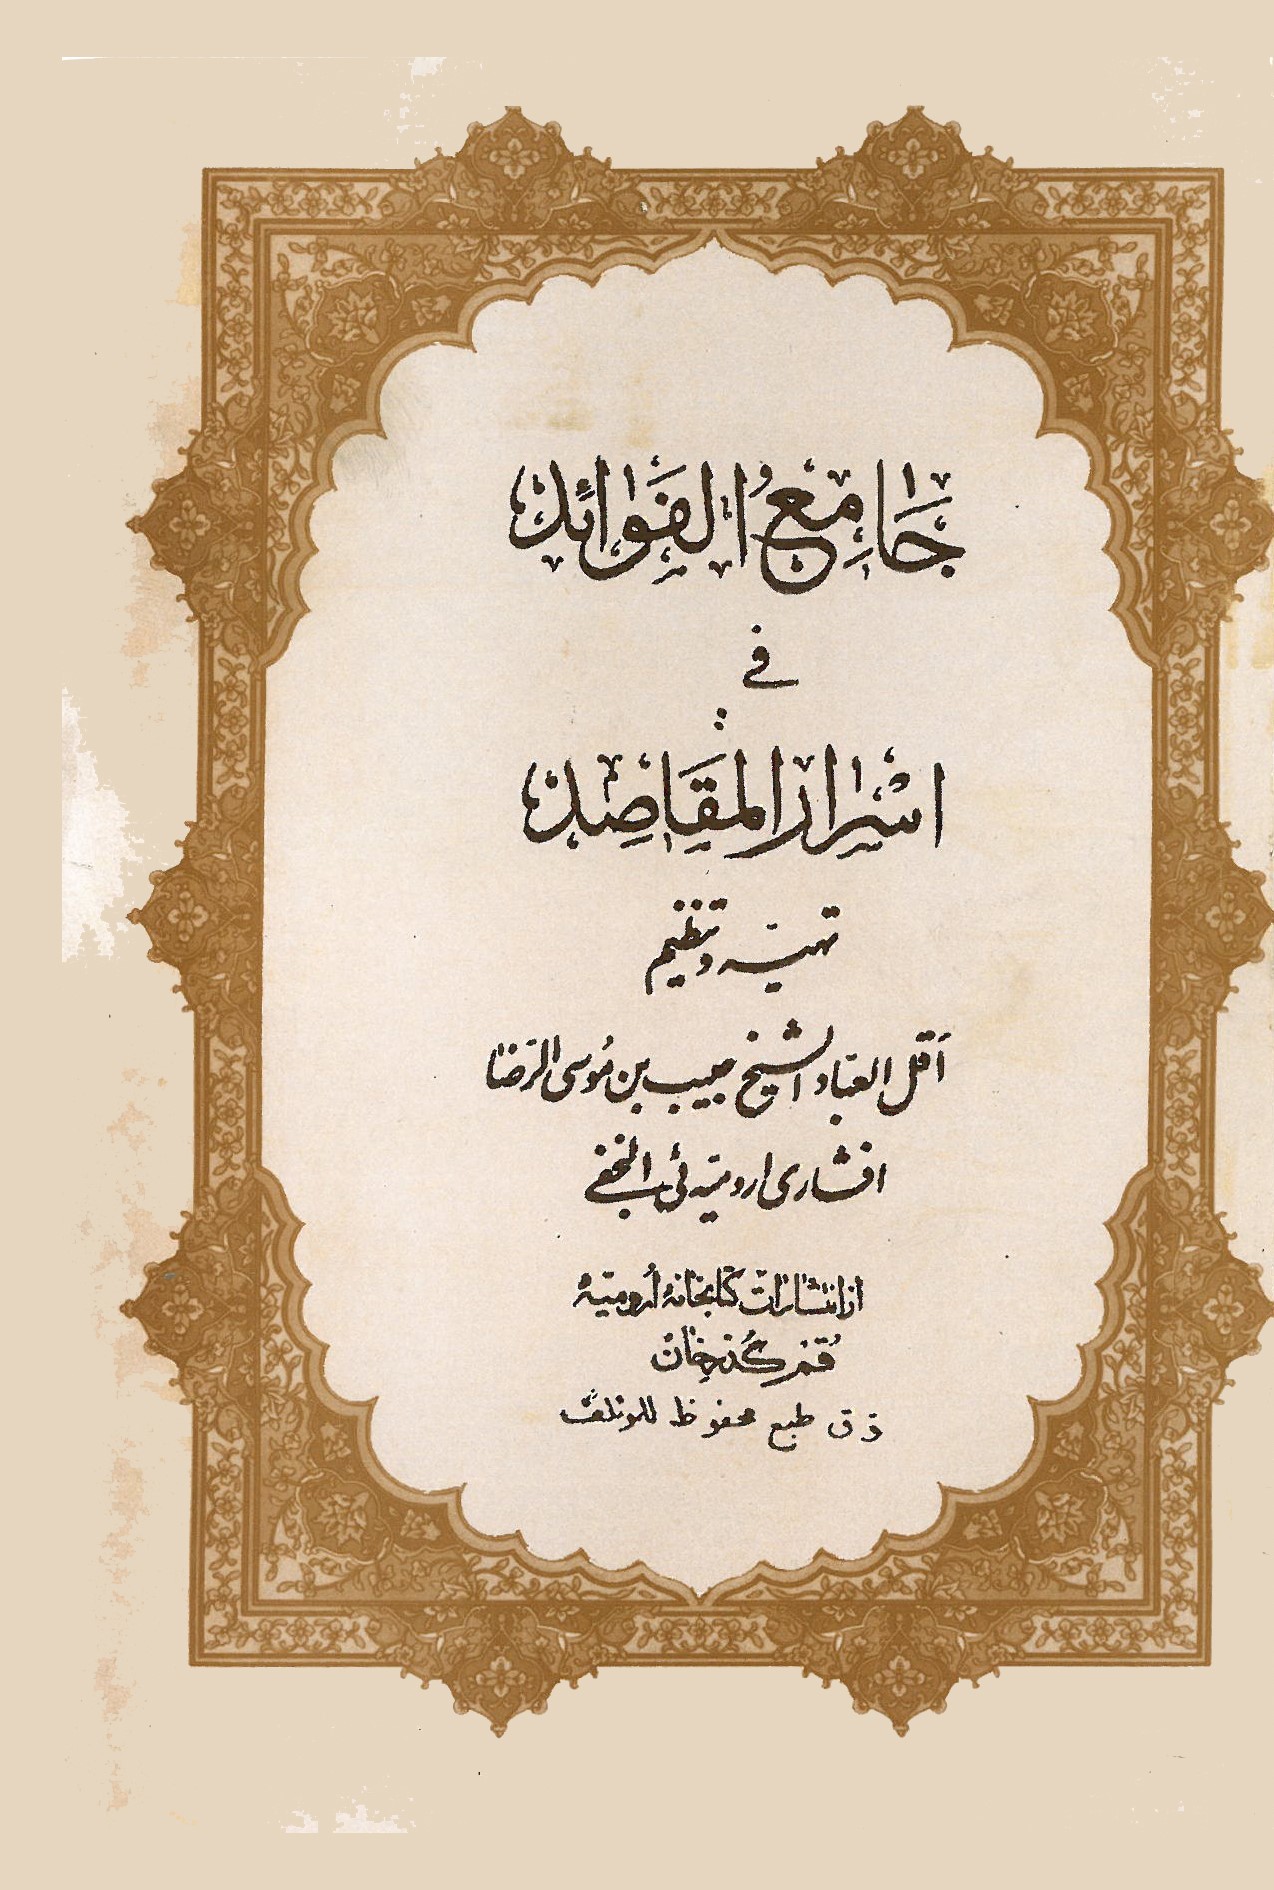 جَامِعُ الفَوَائِد
في
اسْرار المَقَاصِد
تهیّه و تنظیم
اَقل العبّاد الشیخ حبیب بن مُوسی الرّضا
افشاری ارومیّه ئی النجفی
از انتشارات کتابخانهٔ اُرومیّهٔ
قُم گذرخان
ق طبع محفوظ للمؤلف